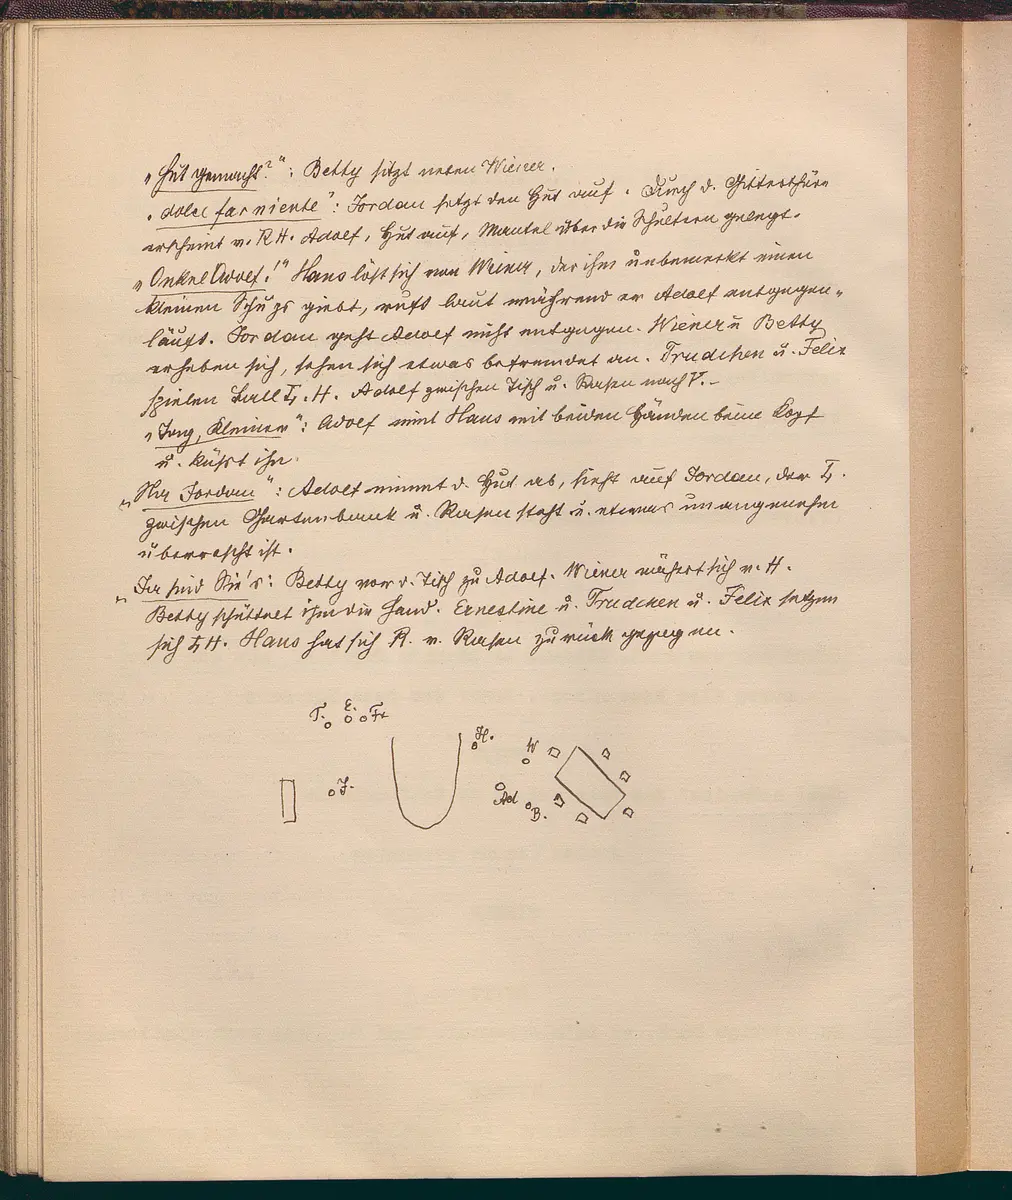 „Gut gemacht?": Betty sitzt neben Wiener.
„dolce far niente": Jordan setzt den Hut auf. Durch d. Gitterthüre
erscheint v. R H. Adolf, Hut auf, Mantel über die Schultern gelegt.
„Onkel Adolf!" Hans löst sich von Wiener, der ihm unbemerkt einen
kleinen Schups giebt, ruft laut während er Adolf entgegen-
läuft. Jordan geht Adolf nicht entgegen. Wiener u Betty
erheben sich, sehen sich etwas befremdet an. Trudchen u. Felix
spielen Ball L. H. Adolf zwischen Tisch u. Rasen nach V.-
„Tag, Kleiner": Adolf nimt Hans mit beiden Händen beim Kopf
u. küsst ihn.
„Na Jordan": Adolf nimmt d. Hut ab, sieht auf Jordan, der L.
zwischen Gartenbank u. Rasen steht u. etwas unangenehm
überrascht ist.
„Da sind Sie's: Betty vor d. Tisch zu Adolf. Wiener nähert sich v. H.
Betty schüttelt ihm die Hand. Ernestine u. Trudchen u. Felix setzen
sich L H. Hans hat sich R. v. Rasen zurück gezogen.
T. E. Fe
H.
W
J.
Ad
B.